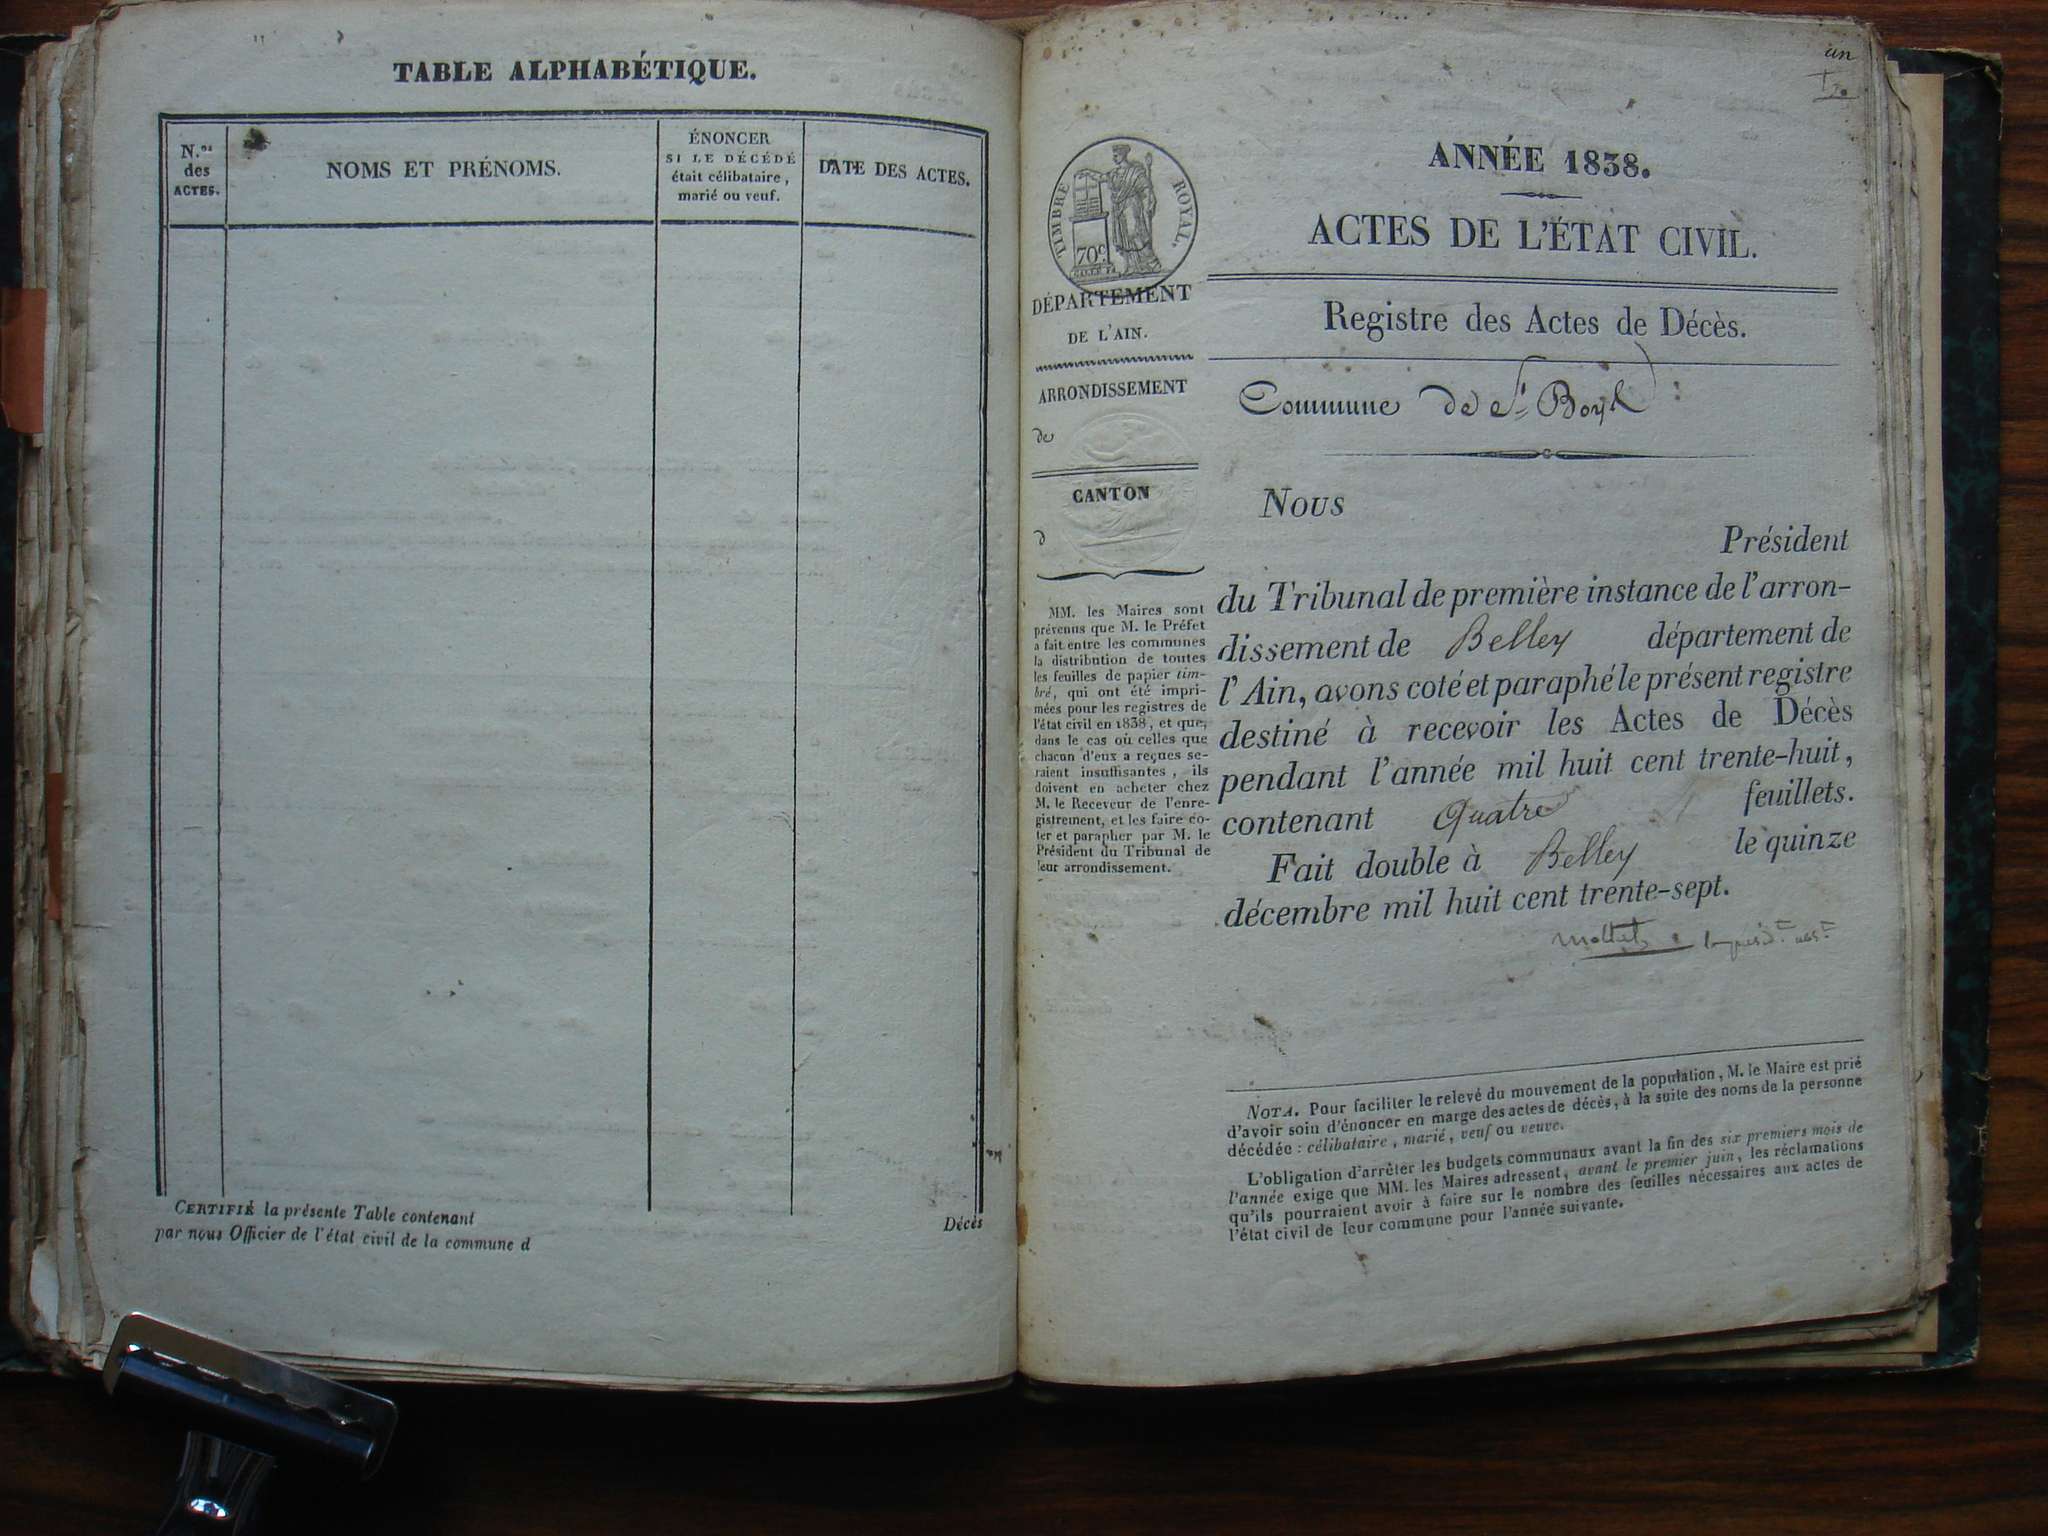 TABLE ALPHABÉTIQUE.
N.os
des
ACTES.
NOMS ET PRÉNOMS.
ÉNONCER
SI LE DÉCÉDÉ
était célibataire,
marié ou veuf.
DATE DES ACTES.
CERTIFIÉ la présente Table contenant
Décès
par nous Officier de l'état civil de la commune d
un
TIMBRE ROYAL.
70c
DÉPARTEMENT
DE L'AIN.
ARRONDISSEMENT
de
CANTON
d
MM. les Maires sont
prévenus que M. le Préfet
a fait entre les communes
la distribution de toutes
les feuilles de papier tim-
bré, qui ont été impri-
mées pour les registres de
l'état civil en 1838, et que,
dans le cas où celles que
chacun d'eux a reçues se-
raient insuffisantes, ils
doivent en acheter chez
M. le Receveur de l'enre-
gistrement, et les faire co-
ter et parapher par M. le
Président du Tribunal de
leur arrondissement.
ANNÉE 1838.
ACTES DE L'ÉTAT CIVIL.
Registre des Actes de Décès.
Commune de St Boys
Nous
Président
du Tribunal de première instance de l'arron-
dissement de Belley département de
l'Ain, avons coté et paraphé le présent registre
destiné à recevoir les Actes de Décès
pendant l'année mil huit cent trente-huit,
contenant Quatre feuillets.
Fait double à Belley le quinze
décembre mil huit cent trente-sept.
NOTA. Pour faciliter le relevé du mouvement de la population, M. le Maire est prié
d'avoir soin d'énoncer en marge des actes de décès, à la suite des noms de la personne
décédée : célibataire, marié, veuf ou veuve.
L'obligation d'arrêter les budgets communaux avant la fin des six premiers mois de
l'année exige que MM. les Maires adressent, avant le premier juin, les réclamations
qu'ils pourraient avoir à faire sur le nombre des feuilles nécessaires aux actes de
l'état civil de leur commune pour l'année suivante.